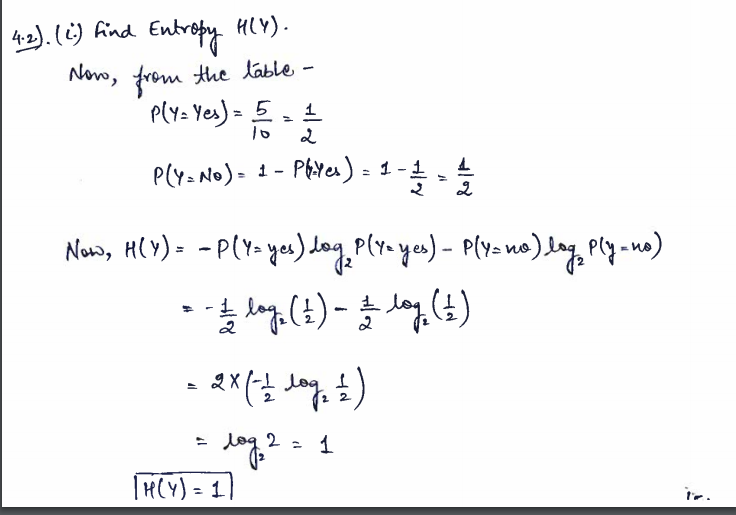 4.2). (i) Find Entropy H(Y).
Now, from the table -
P(Y=Yes) = 5/10 = 1/2
P(Y=No) = 1 - P(Y=Yes) = 1 - 1/2 = 1/2
Now, H(Y) = - P(Y=yes) log₂ P(Y=yes) - P(Y=no) log₂ P(y=no)
= - 1/2 log₂(1/2) - 1/2 log₂(1/2)
= 2×(-1/2 log₂ 1/2)
= log₂ 2 = 1
H(Y) = 1